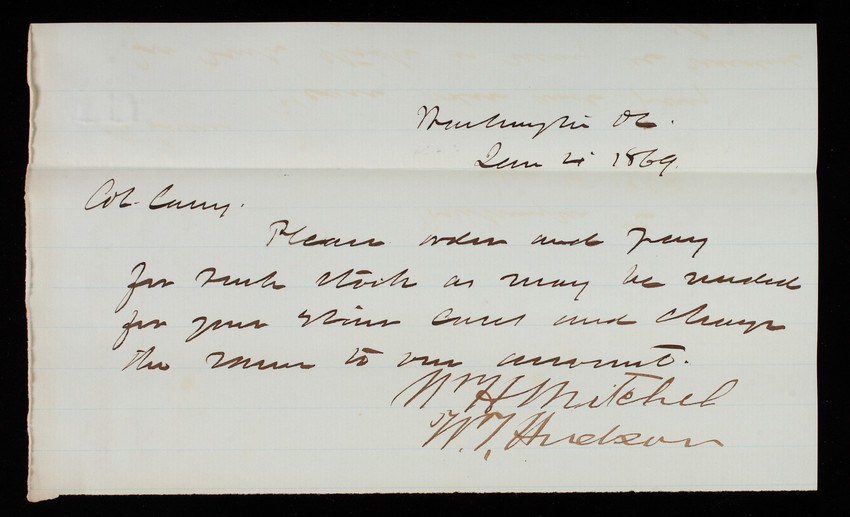 Washington DC.
Jan 21 1869.
Col. Casey.
Please order and pay
for such stock as may be needed
for your Stair Cases and charge
the same to our account.
Wm H Mitchel
W. T. Hudson